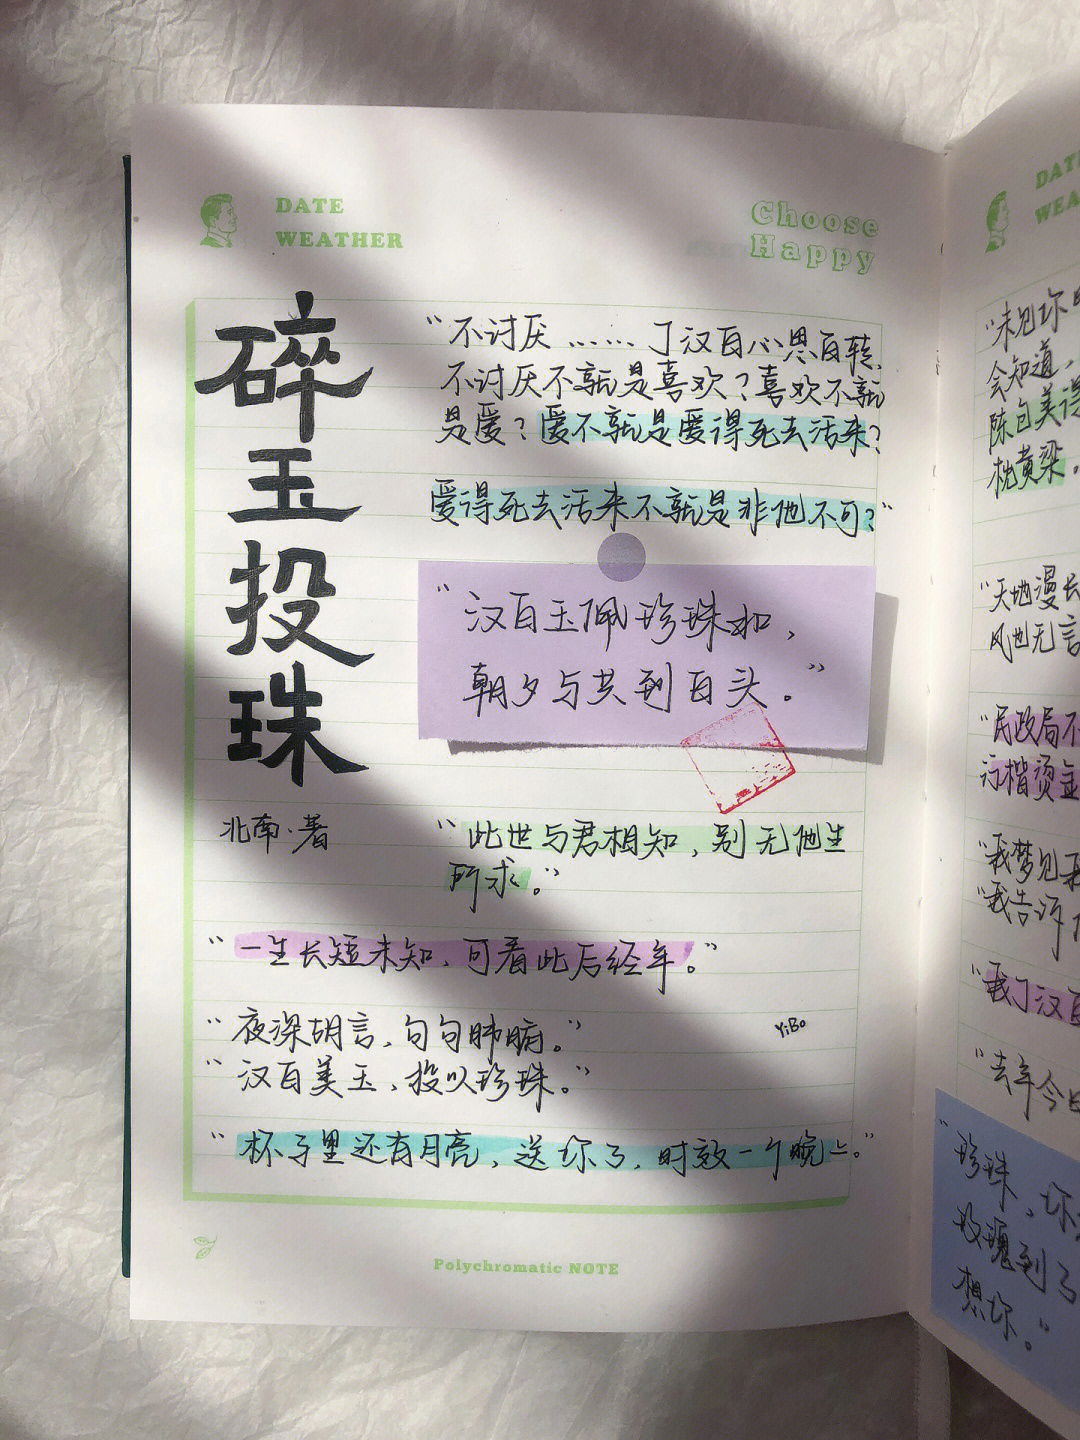 DATE
WEATHER
Choose
Happy
碎玉投珠
北南·著
“不讨厌……丁汉白心思百转，
不讨厌不就是喜欢？喜欢不就
是爱？爱不就是爱得死去活来？
爱得死去活来不就是非他不可？”
“汉白玉佩珍珠扣，
朝夕与共到白头。”
“此世与君相知，别无他生
所求。”
“一生长短未知，可看此后经年。”
“夜深胡言，句句肺腑。”
YiBo
“汉白美玉，投以珍珠。”
“杯子里还有月亮，送你了，时效一个晚上。”
Polychromatic NOTE
DAT
WEA
“未见你
会知道，
陈包美得
枕黄梁。
“天地漫长
风也无言
“民政局不
行楷烫金
“我梦见
“我告诉
“我丁汉白
“去年今日
“珍珠，你
玫瑰到了
想你。”